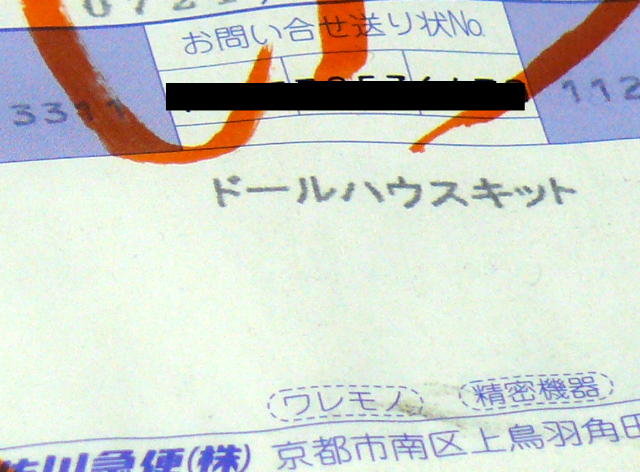 お問い合せ送り状No.
3311
112
ドールハウスキット
ワレモノ 精密機器
佐川急便(株) 京都市南区上鳥羽角田